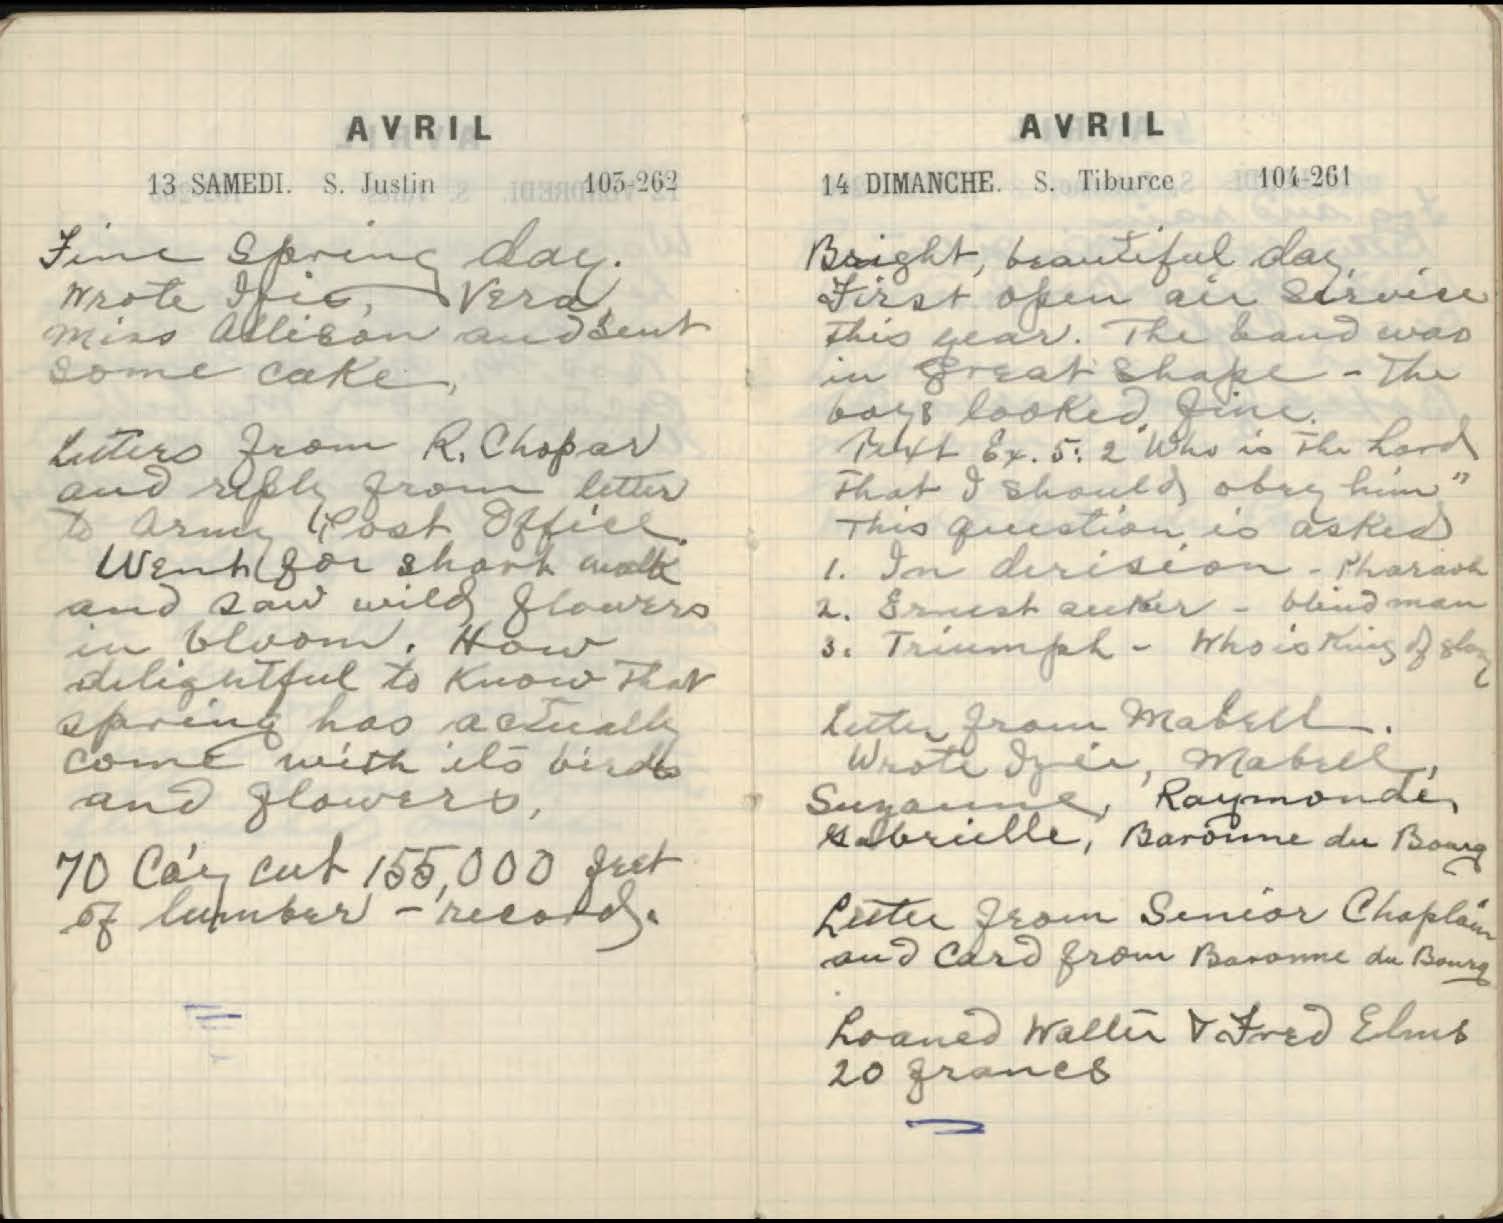 AVRIL
13 SAMEDI. S. Justin 103-262
Fine Spring day.
Wrote Izie, Vera,
Miss Allison and sent
some cake.
Letters from R. Chopar
and reply from letter
to Army Post Office.
Went for short walk
and saw wild flowers
in bloom. How
delightful to know that
spring has actually
come with its birds
and flowers.
70 Co'y cut 155,000 feet
of lumber - record.
AVRIL
14 DIMANCHE. S. Tiburce 104-261
Bright, beautiful day.
First open air service
this year. The band was
in great shape - The
boys looked fine.
Text Ex. 5:2 "Who is the Lord
that I should obey him"
This question is asked
1. In derision - Pharaoh
2. Ernest seeker - blind man
3. Triumph - Who is King of glory
Letter from Mabell.
Wrote Izie, Mabell,
Suzanne, Raymonde,
Gabrielle, Baronne du Bourg
Letter from Senior Chaplain
and Card from Baronne du Bourg
Loaned Walter & Fred Elms
20 francs